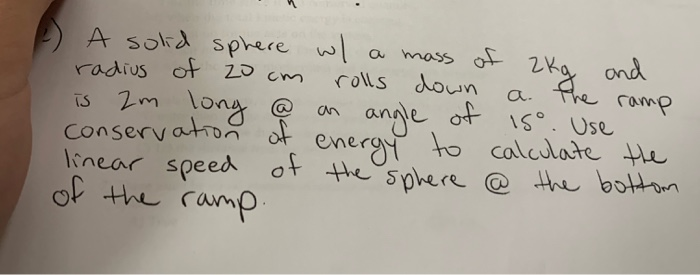 2) A solid sphere w/ a mass of 2kg and
radius of 20 cm rolls down a. the ramp
is 2m long @ an angle of 15°. Use
conservation of energy to calculate the
linear speed of the sphere @ the bottom
of the ramp.